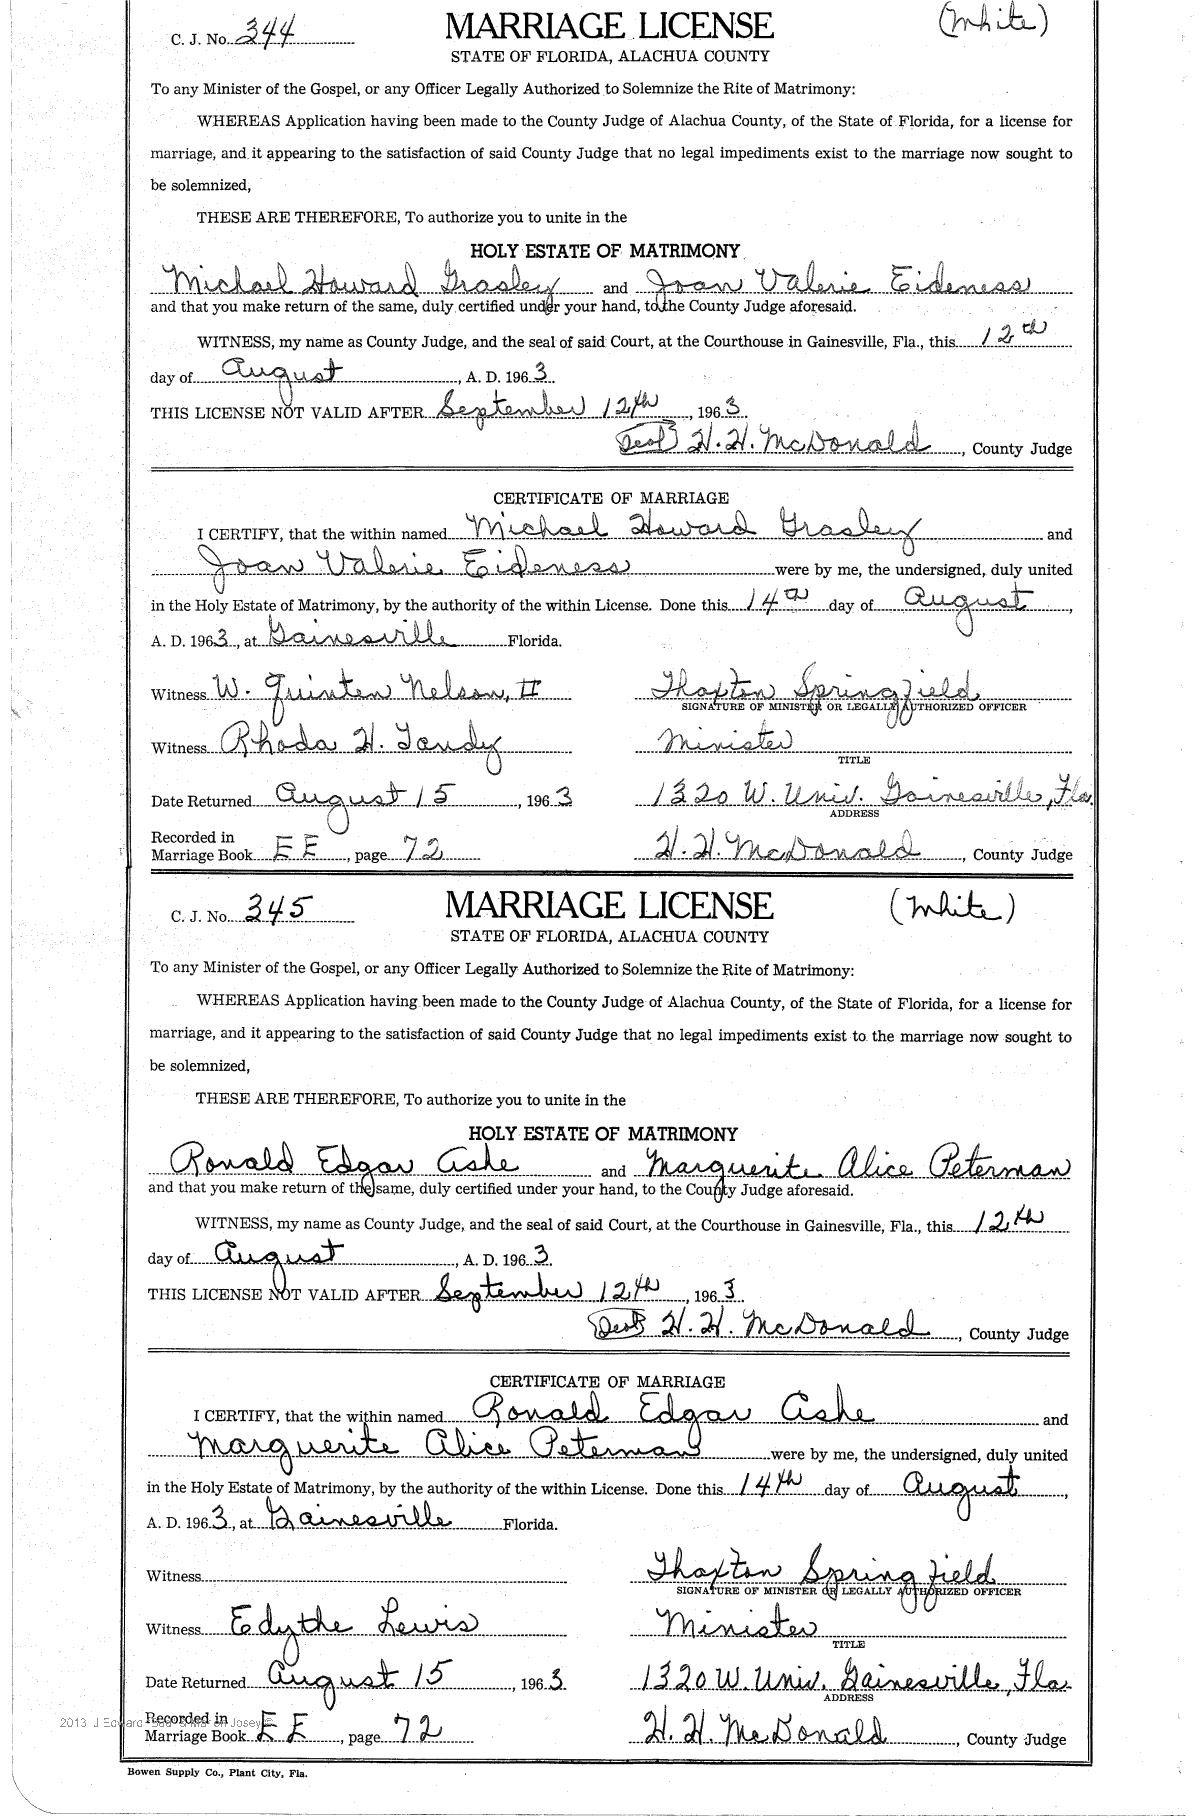 C. J. No. 344 MARRIAGE LICENSE (White)
STATE OF FLORIDA, ALACHUA COUNTY
To any Minister of the Gospel, or any Officer Legally Authorized to Solemnize the Rite of Matrimony:
WHEREAS Application having been made to the County Judge of Alachua County, of the State of Florida, for a license for
marriage, and it appearing to the satisfaction of said County Judge that no legal impediments exist to the marriage now sought to
be solemnized,
THESE ARE THEREFORE, To authorize you to unite in the
HOLY ESTATE OF MATRIMONY
Michael Howard Grasley and Joan Valerie Eideness
and that you make return of the same, duly certified under your hand, to the County Judge aforesaid.
WITNESS, my name as County Judge, and the seal of said Court, at the Courthouse in Gainesville, Fla., this 12th
day of August, A. D. 1963.
THIS LICENSE NOT VALID AFTER September 12th, 1963
Seal H. H. McDonald, County Judge
CERTIFICATE OF MARRIAGE
I CERTIFY, that the within named Michael Howard Grasley and
Joan Valerie Eideness were by me, the undersigned, duly united
in the Holy Estate of Matrimony, by the authority of the within License. Done this 14th day of August,
A. D. 1963, at Gainesville Florida.
Witness W. Quinten Nelson, II Thaxton Springfield
SIGNATURE OF MINISTER OR LEGALLY AUTHORIZED OFFICER
Witness Rhoda H. Tandy Minister
TITLE
Date Returned August 15, 1963 1320 W. Univ. Gainesville, Fla.
ADDRESS
Recorded in
Marriage Book EE, page 72 H. H. McDonald, County Judge
C. J. No. 345 MARRIAGE LICENSE (White)
STATE OF FLORIDA, ALACHUA COUNTY
To any Minister of the Gospel, or any Officer Legally Authorized to Solemnize the Rite of Matrimony:
WHEREAS Application having been made to the County Judge of Alachua County, of the State of Florida, for a license for
marriage, and it appearing to the satisfaction of said County Judge that no legal impediments exist to the marriage now sought to
be solemnized,
THESE ARE THEREFORE, To authorize you to unite in the
HOLY ESTATE OF MATRIMONY
Ronald Edgar Ashe and Marguerite Alice Peterman
and that you make return of the same, duly certified under your hand, to the County Judge aforesaid.
WITNESS, my name as County Judge, and the seal of said Court, at the Courthouse in Gainesville, Fla., this 12th
day of August, A. D. 1963.
THIS LICENSE NOT VALID AFTER September 12th, 1963
Seal H. H. McDonald, County Judge
CERTIFICATE OF MARRIAGE
I CERTIFY, that the within named Ronald Edgar Ashe and
Marguerite Alice Peterman were by me, the undersigned, duly united
in the Holy Estate of Matrimony, by the authority of the within License. Done this 14th day of August,
A. D. 1963, at Gainesville Florida.
Witness Thaxton Springfield
SIGNATURE OF MINISTER OR LEGALLY AUTHORIZED OFFICER
Witness Edythe Lewis Minister
TITLE
Date Returned August 15, 1963 1320 W. Univ. Gainesville, Fla.
ADDRESS
2013 J Edward Josey ©
Recorded in
Marriage Book EE, page 72 H. H. McDonald, County Judge
Bowen Supply Co., Plant City, Fla.